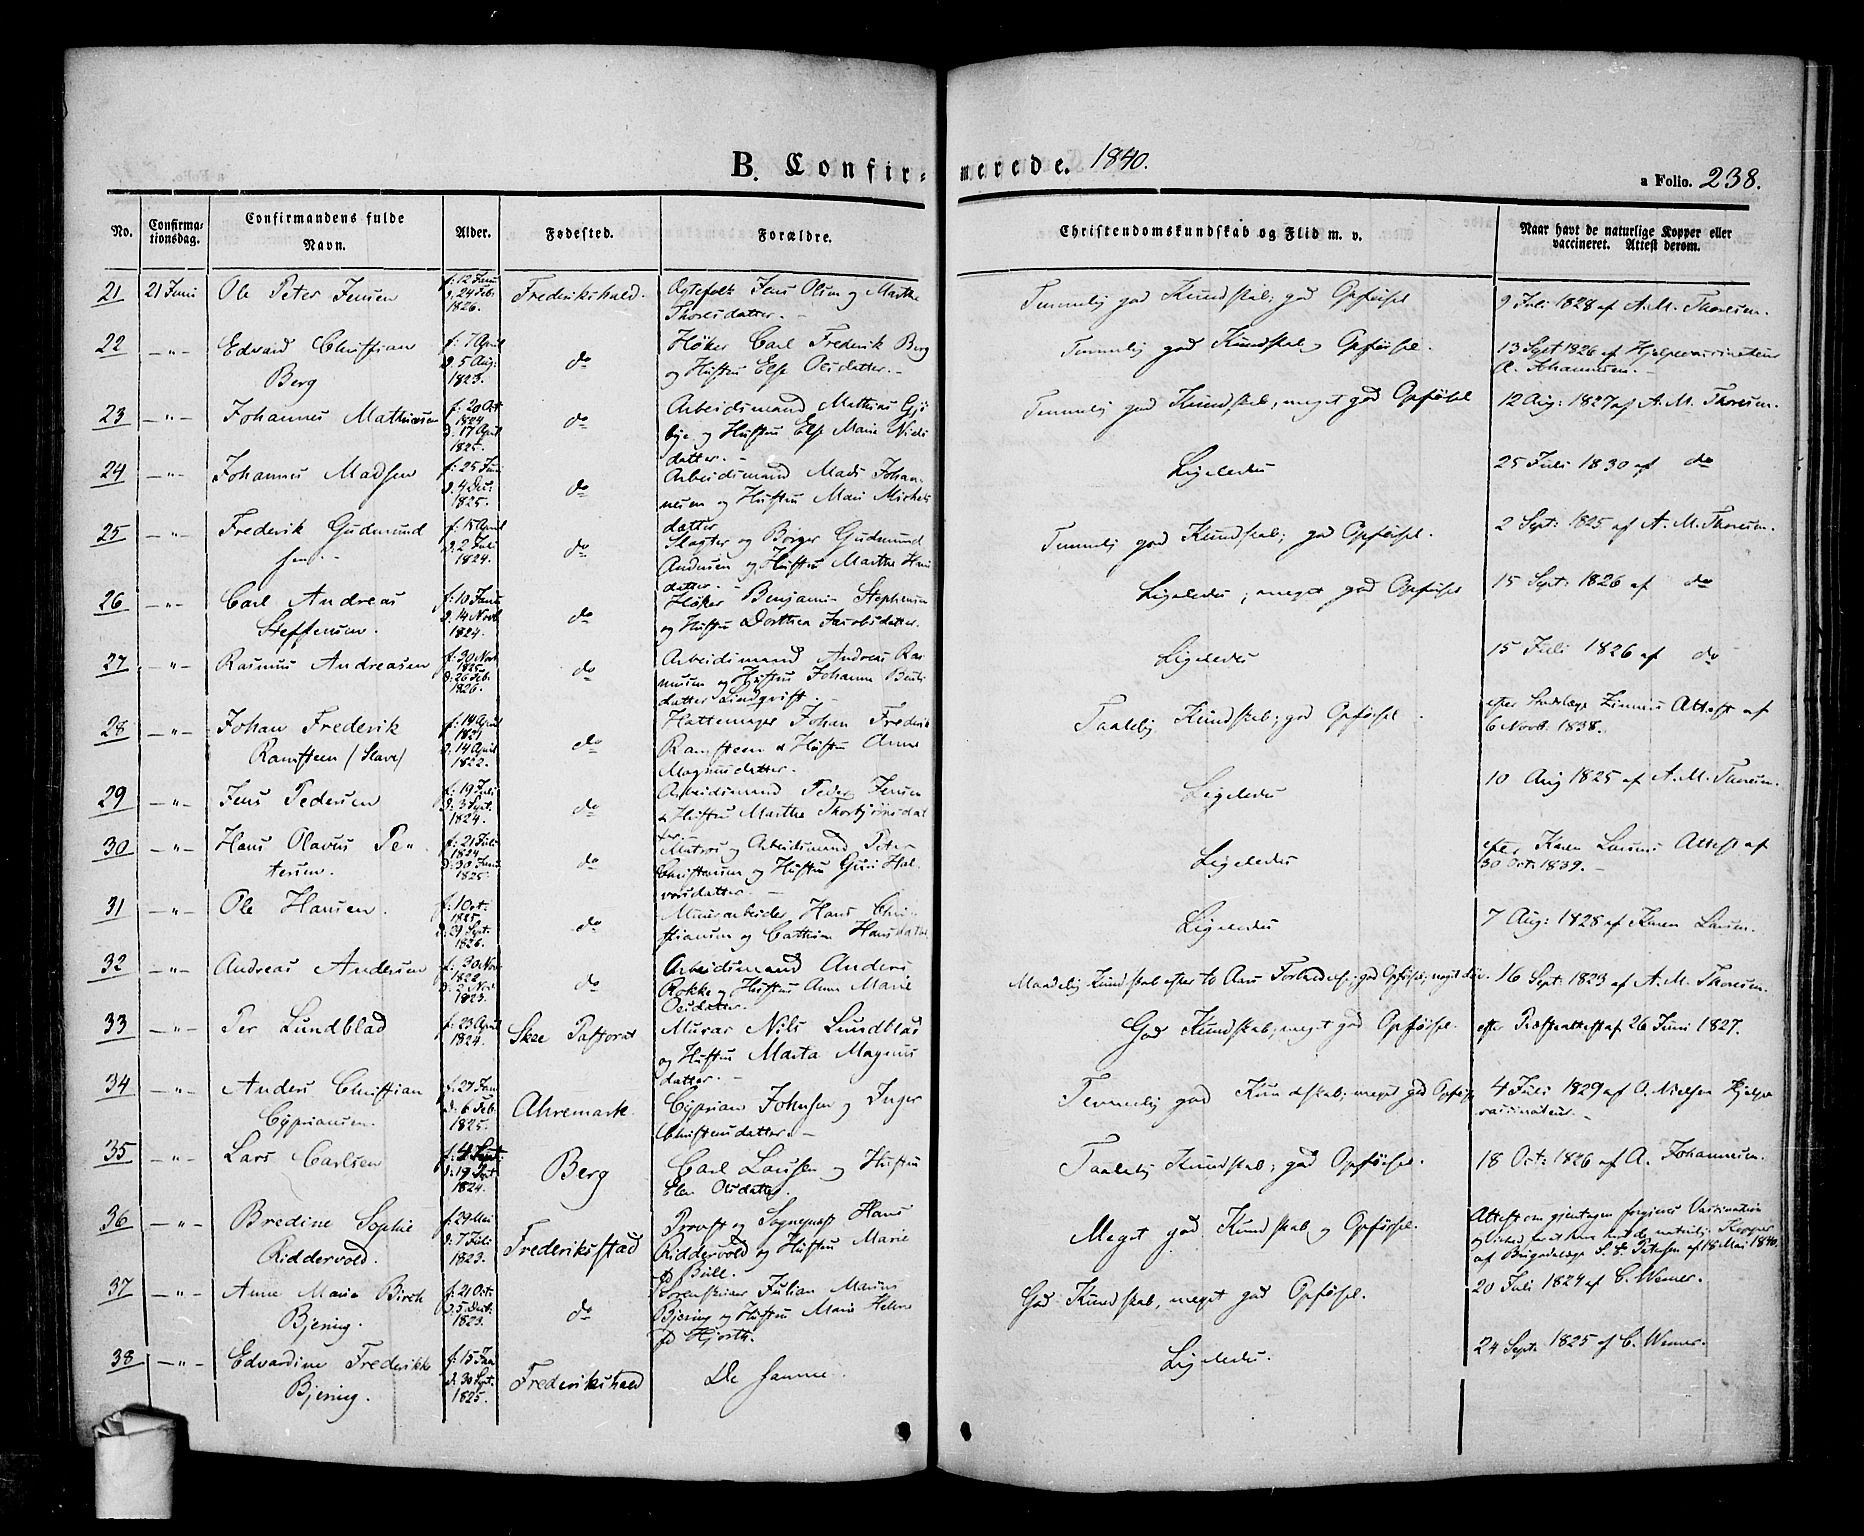 B. Confir-
merede. 1840.
a Folio. 238.
No. Confirma-tionsdag. Confirmandens fulde Navn. Alder. Fødested. Forældre. Christendomskundskab og Flid m. v. Naar havt de naturlige Kopper eller vaccineret. Attest derom.
21 21 Juni Ole Peter Jensen f: 12 Janu d: 24 Feb. 1826. Frederikshald. Ægtefolk Jens Olsen og Marthe Thoresdatter. - Temmelig god Kundskab; god Opførsel 9 Juli 1828 af A. M. Thoresen.
22 -"- Edvard Christian Berg f: 7 April d: 5 Aug: 1823. do Høker Carl Frederik Berg og Hustru Else Olsdatter. - Temmelig god Kundskab og Opførsel. 13 Sept 1826 af Hjelpevaccinateur A. Johannesen. -
23 -"- Johannes Mathiesen f: 20 Oct 1824 d: 17 April 1825. do Arbeidsmand Mathias Gjö bye og Hustru Else Marie Niels datter. - Temmelig god Kundskab, meget god Opførsel 12 Aug: 1827 af A. M. Thoresen.
24 -"- Johannes Madsen f: 25 Juni d: 4 Dec: 1825. do Arbeidsmand Mads Johan nesen og Hustru Mari Michels datter Ligeledes 25 Juli 1830 af do
25 -"- Frederik Gudmund sen. - f: 15 April d: 2 Juli 1824. do Slagter og Borger Gudmund Andersen og Hustru Marthe Hans datter. - Temmelig god Kundskab; god Opførsel. 2 Sept: 1825 af A. M. Thoresen.
26 -"- Carl Andreas Steffensen. f: 10 Juni d: 14 Novb 1824. do Høker Benjamin Stephensen og Hustru Dorthea Jacobsdatter. Ligeledes; meget god Opførsel 15 Sept: 1826 af do
27 -"- Rasmus Andreasen f: 30 Nov 1825. d: 26 Feb. 1826. do Arbeidsmand Andreas Ras musen og Hustru Johanne Bents datter Lindqvist. - Ligeledes 15 Juli 1826 af do
28 -"- Johan Frederik Ramsteen (Slave) f: 14 April 1821 d: 14 April 1822. do Hattemager Johan Frederik Ramsteen & Hustru Anne Magnusdatter. - Taalelig Kundskab; god Opførsel. efter Attest af 6 Novb. 1838.
29 -"- Jens Pedersen f: 19 Juli d: 3 Sept. 1824. do Arbeidsmand Peder Jensen & Hustru Marthe Thorbjörnsdat ter. Ligeledes 10 Aug 1825 af A. M. Thoresen.
30 -"- Hans Olavus Pe- tersen. f: 21 Juli 1824 d: 30 Janu 1825. do Matros og Arbeidsmand Peter Christensen og Hustru Guri Hal vorsdatter. - Ligeledes efter Karen Larsens Attest af 30 Oct: 1839.
31 -"- Ole Hansen. f: 1 Oct. 1825. d: 29 Sept. 1826. do Muurarbeider Hans Chri- stiansen og Cathrine Hansdatter. Ligeledes 7 Aug: 1828 af Karen Larsen.
32 -"- Andreas Andersen f: 30 Nov 1822. d: 2 Nov 1823. do Arbeidsmand Anders Rokke og Hustru Anne Marie Olsdatter. Maadelig Kundskab efter to Aars Forberedelse; god Opførsel; meget 16 Sept: 1823 af A. M. Thoresen.
33 -"- Per Lundblad f: 23 April 1824. Skee Pastorat Murar Nils Lundblad og Hustru Marta Magnus datter. - God Kundskab, meget god Opførsel. efter Præsteattest af 26 Juni 1827.
34 -"- Anders Christian Cyprianisen. f: 27 Janu d: 6 Feb. 1825. Ahremark. Cyprian Johnsen og Inger Christensdatter. - Temmelig god Kundskab; meget god Opførsel 4 Juli 1829 af A. Nielsen Hjelpe vaccinateur. -
35 -"- Lars Carlsen f: 4 Sept: d: 19 Sept 1824. Berg Carl Laussen og Hustru Elen Olsdatter. Taalelig Kundskab; god Opførsel. 18 Oct: 1826 af A. Johannesen.
36 -"- Bredine Sophie Riddervold. f: 29 Mai d: 7 Juli 1823. Frederiksstad Provst og Sognepræst Hans Riddervold og Hustru Marie fd Bull. Meget god Kundskab og Opførsel. Attest om gjentagen forgjæves Vaccination af Brigadelæge S. S. Petersen af 18 Mai 1840.
37 -"- Anne Marie Birch Bjering. f: 21 Oct. d: 5 Dec: 1823. do Sorenskriver Julian Marius Bjering og Hustru Marie Helene fd Hjorth. God Kundskab, meget god Opførsel. 20 Juli 1824 af C. Werner.
38 -"- Edvardine Frederikke Bjering. f: 15 Jan d: 30 Sept. 1825. Frederikshald De samme. Ligeledes. 24 Sept. 1825 af C. Werner.